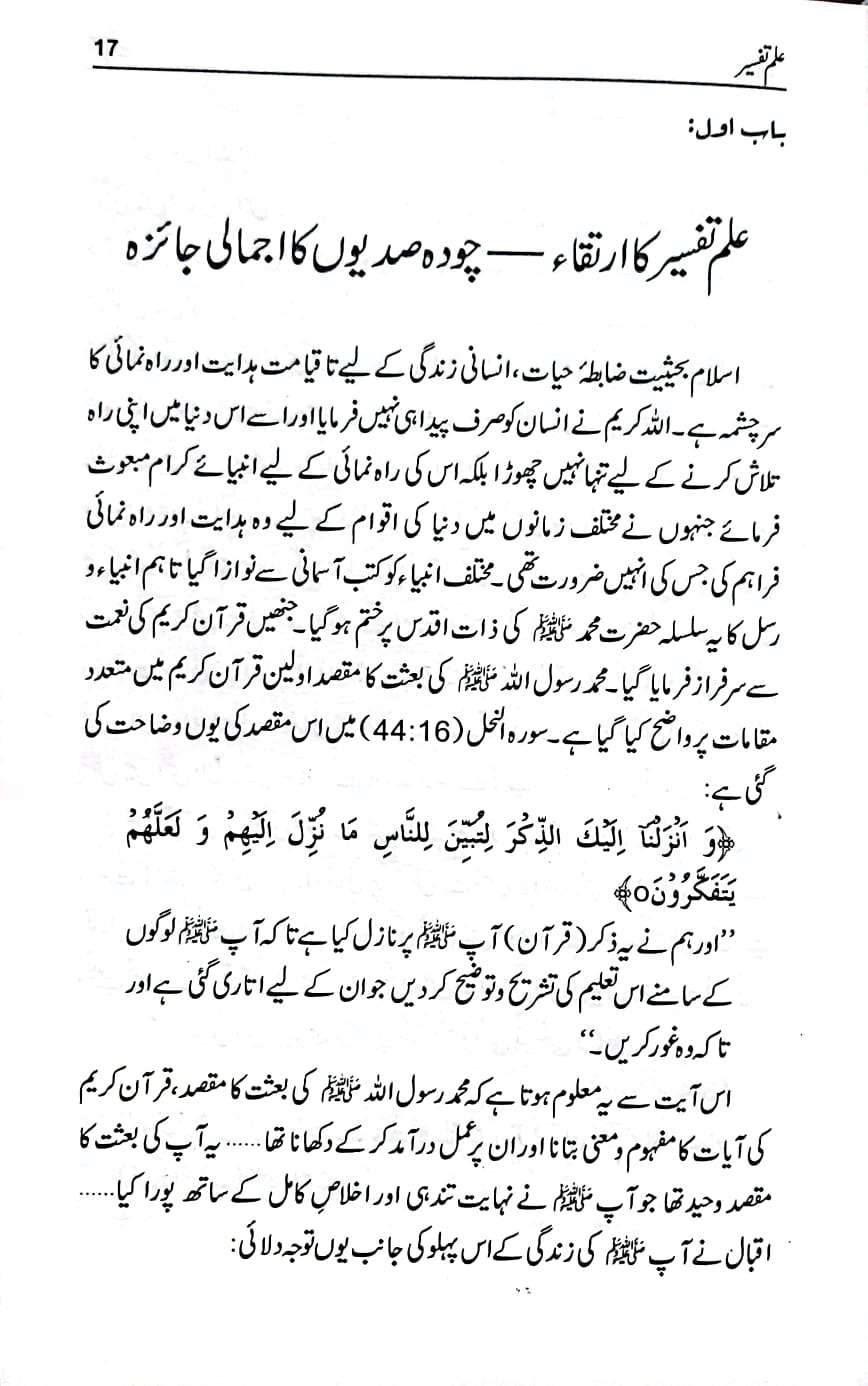 علم تفسیر 17
باب اول:
علم تفسیر کا ارتقاء — چودہ صدیوں کا اجمالی جائزہ
اسلام بحیثیت ضابطۂ حیات، انسانی زندگی کے لیے تا قیامت ہدایت اور راہ نمائی کا
سرچشمہ ہے۔ اللہ کریم نے انسان کو صرف پیدا ہی نہیں فرمایا اور اسے اس دنیا میں اپنی راہ
تلاش کرنے کے لیے تنہا نہیں چھوڑا بلکہ اس کی راہ نمائی کے لیے انبیائے کرام مبعوث
فرمائے جنہوں نے مختلف زمانوں میں دنیا کی اقوام کے لیے وہ ہدایت اور راہ نمائی
فراہم کی جس کی انہیں ضرورت تھی۔ مختلف انبیاء کو کتب آسمانی سے نوازا گیا تاہم انبیاء و
رسل کا یہ سلسلہ حضرت محمد ﷺ کی ذات اقدس پر ختم ہوگیا۔ جنھیں قرآن کریم کی نعمت
سے سرفراز فرمایا گیا۔ محمد رسول اللہ ﷺ کی بعثت کا مقصد اولین قرآن کریم میں متعدد
مقامات پر واضح کیا گیا ہے۔ سورہ النحل (44:16) میں اس مقصد کی یوں وضاحت کی
گئی ہے:
﴿وَ اَنْزَلْنَآ اِلَيْكَ الذِّكْرَ لِتُبَيِّنَ لِلنَّاسِ مَا نُزِّلَ اِلَيْهِمْ وَ لَعَلَّهُمْ
يَتَفَكَّرُوْنَo﴾
”اور ہم نے یہ ذکر (قرآن) آپ ﷺ پر نازل کیا ہے تاکہ آپ ﷺ لوگوں
کے سامنے اس تعلیم کی تشریح و توضیح کر دیں جو ان کے لیے اتاری گئی ہے اور
تاکہ وہ غور کریں۔“
اس آیت سے یہ معلوم ہوتا ہے کہ محمد رسول اللہ ﷺ کی بعثت کا مقصد، قرآن کریم
کی آیات کا مفہوم و معنی بتانا اور ان پر عمل درآمد کر کے دکھانا تھا...... یہ آپ کی بعثت کا
مقصد وحید تھا جو آپ ﷺ نے نہایت تندہی اور اخلاصِ کامل کے ساتھ پورا کیا......
اقبال نے آپ ﷺ کی زندگی کے اس پہلو کی جانب یوں توجہ دلائی: